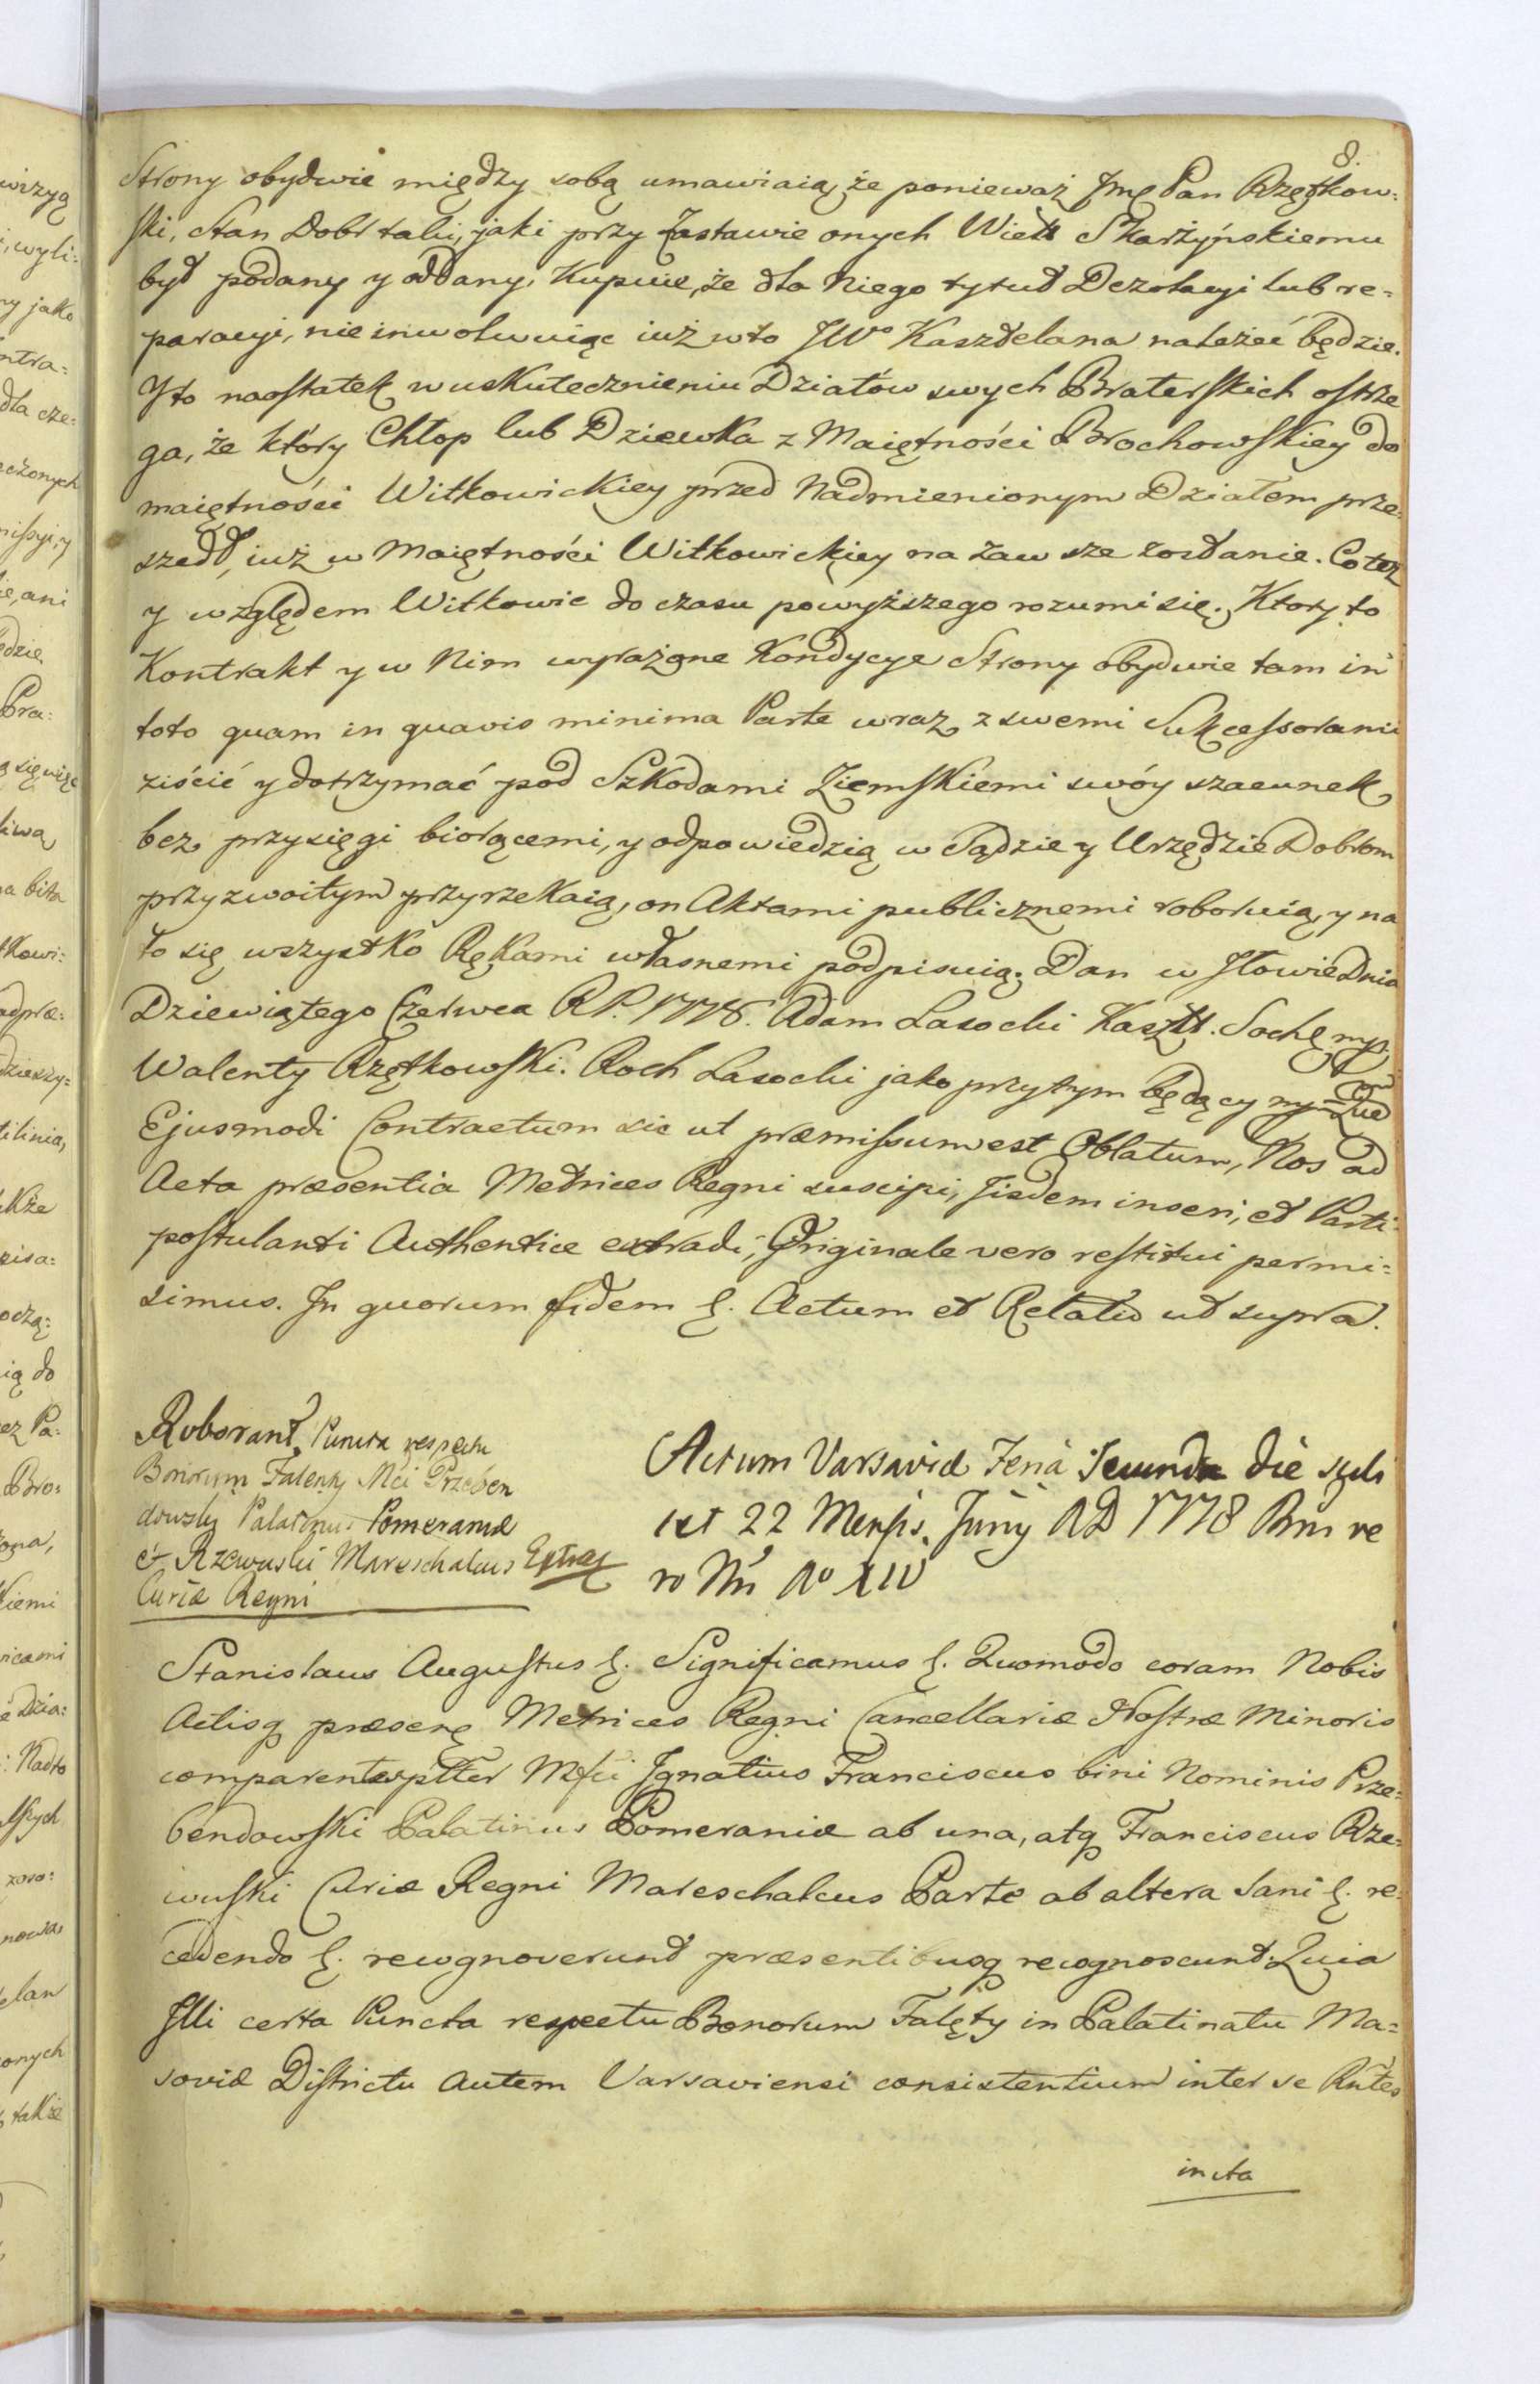 8.
Strony obydwie między sobą umawiaią, że ponieważ Jmę Pan Rzętkow:
ski, Stan Dobr taki, jaki przy Zastawie onych Wielt Skarżyńskiemu
był podany y oddany, Kupuie, że dla Niego tytuł Dezolacyi lub re=
paracyi, nie inwolwuiąc iuż w to JWo Kasztelana należeć będzie.
Y to naostatek w uskutecznieniu Działów swych Braterskich ostrze
ga, że który Chłop lub Dziewka z Maiętności Brochowskiey do
maiętności Witkowickiey przed Nadmienionym Działem prze=
szedł, iuż w Maiętności Witkowickiey na zawsze zostanie. Co też
y względem Witkowic do czasu powyższego rozumi się. Ktory to
Kontrakt y w Nim wyrażone Kondycye Strony obydwie tam in
toto quam in quavis minima Parte wraz z swemi Sukcessorami
ziścić y dotrzymać pod Szkodami Ziemskiemi swóy szacunek
bez przysięgi biorącemi, y odpowiedzią w Sądzie y Urzędzie Dobrom
przyzwoitym przyrzekaią, on Aktami publicznemi roboruią, y na
to się wszystko Rękami własnemi podpisuią. Dan w Iłowie Dnia
Dziewiątego Czerwca R.P. 1778. Adam Lasocki Kasztt. Sochę mp
Walenty Rzętkowski. Roch Lasocki jako przytym będący mp Qm
Ejusmodi Contractum sic ut præmissum est Oblatum, Nos ad
Acta præsentia Metrices Regni suscipi, Jisdem inseri, et Parti
postulanti Authentice extradi, Originale vero restitui permi=
simus. In quorum fidem &. Actum et Relatio ut supra.
Roborant Puncta respectu
Bonorum Falenty Mci Przeben
dowski Palatinus Pomeraniæ
& Rzewuski Mareschalcus Extrad
Curiæ Regni
Actum Varsaviæ Feria Secunda die scili
cet 22 Mensis Junij AD 1778 Rni ve
ro Nri Ao XIV
Stanislaus Augustus &. Significamus &. Quomodo coram Nobis
Actisq præsenę Metrices Regni Cancellariæ Nostræ Minoris
comparentes psltter Mfci Ignatius Franciscus bini Nominis Prze=
bendowski Palatinus Pomeraniæ ab una, atq Franciscus Rze=
wuski Curiæ Regni Mareschalcus Parte ab altera sani &. re=
cedendo &. recognoverunt præsentibusq recognoscunt. Quia
Illi certa Puncta respectu Bonorum Falęty in Palatinatu Ma=
soviæ Districtu autem Varsaviensi consistentium inter se Rntes
incta